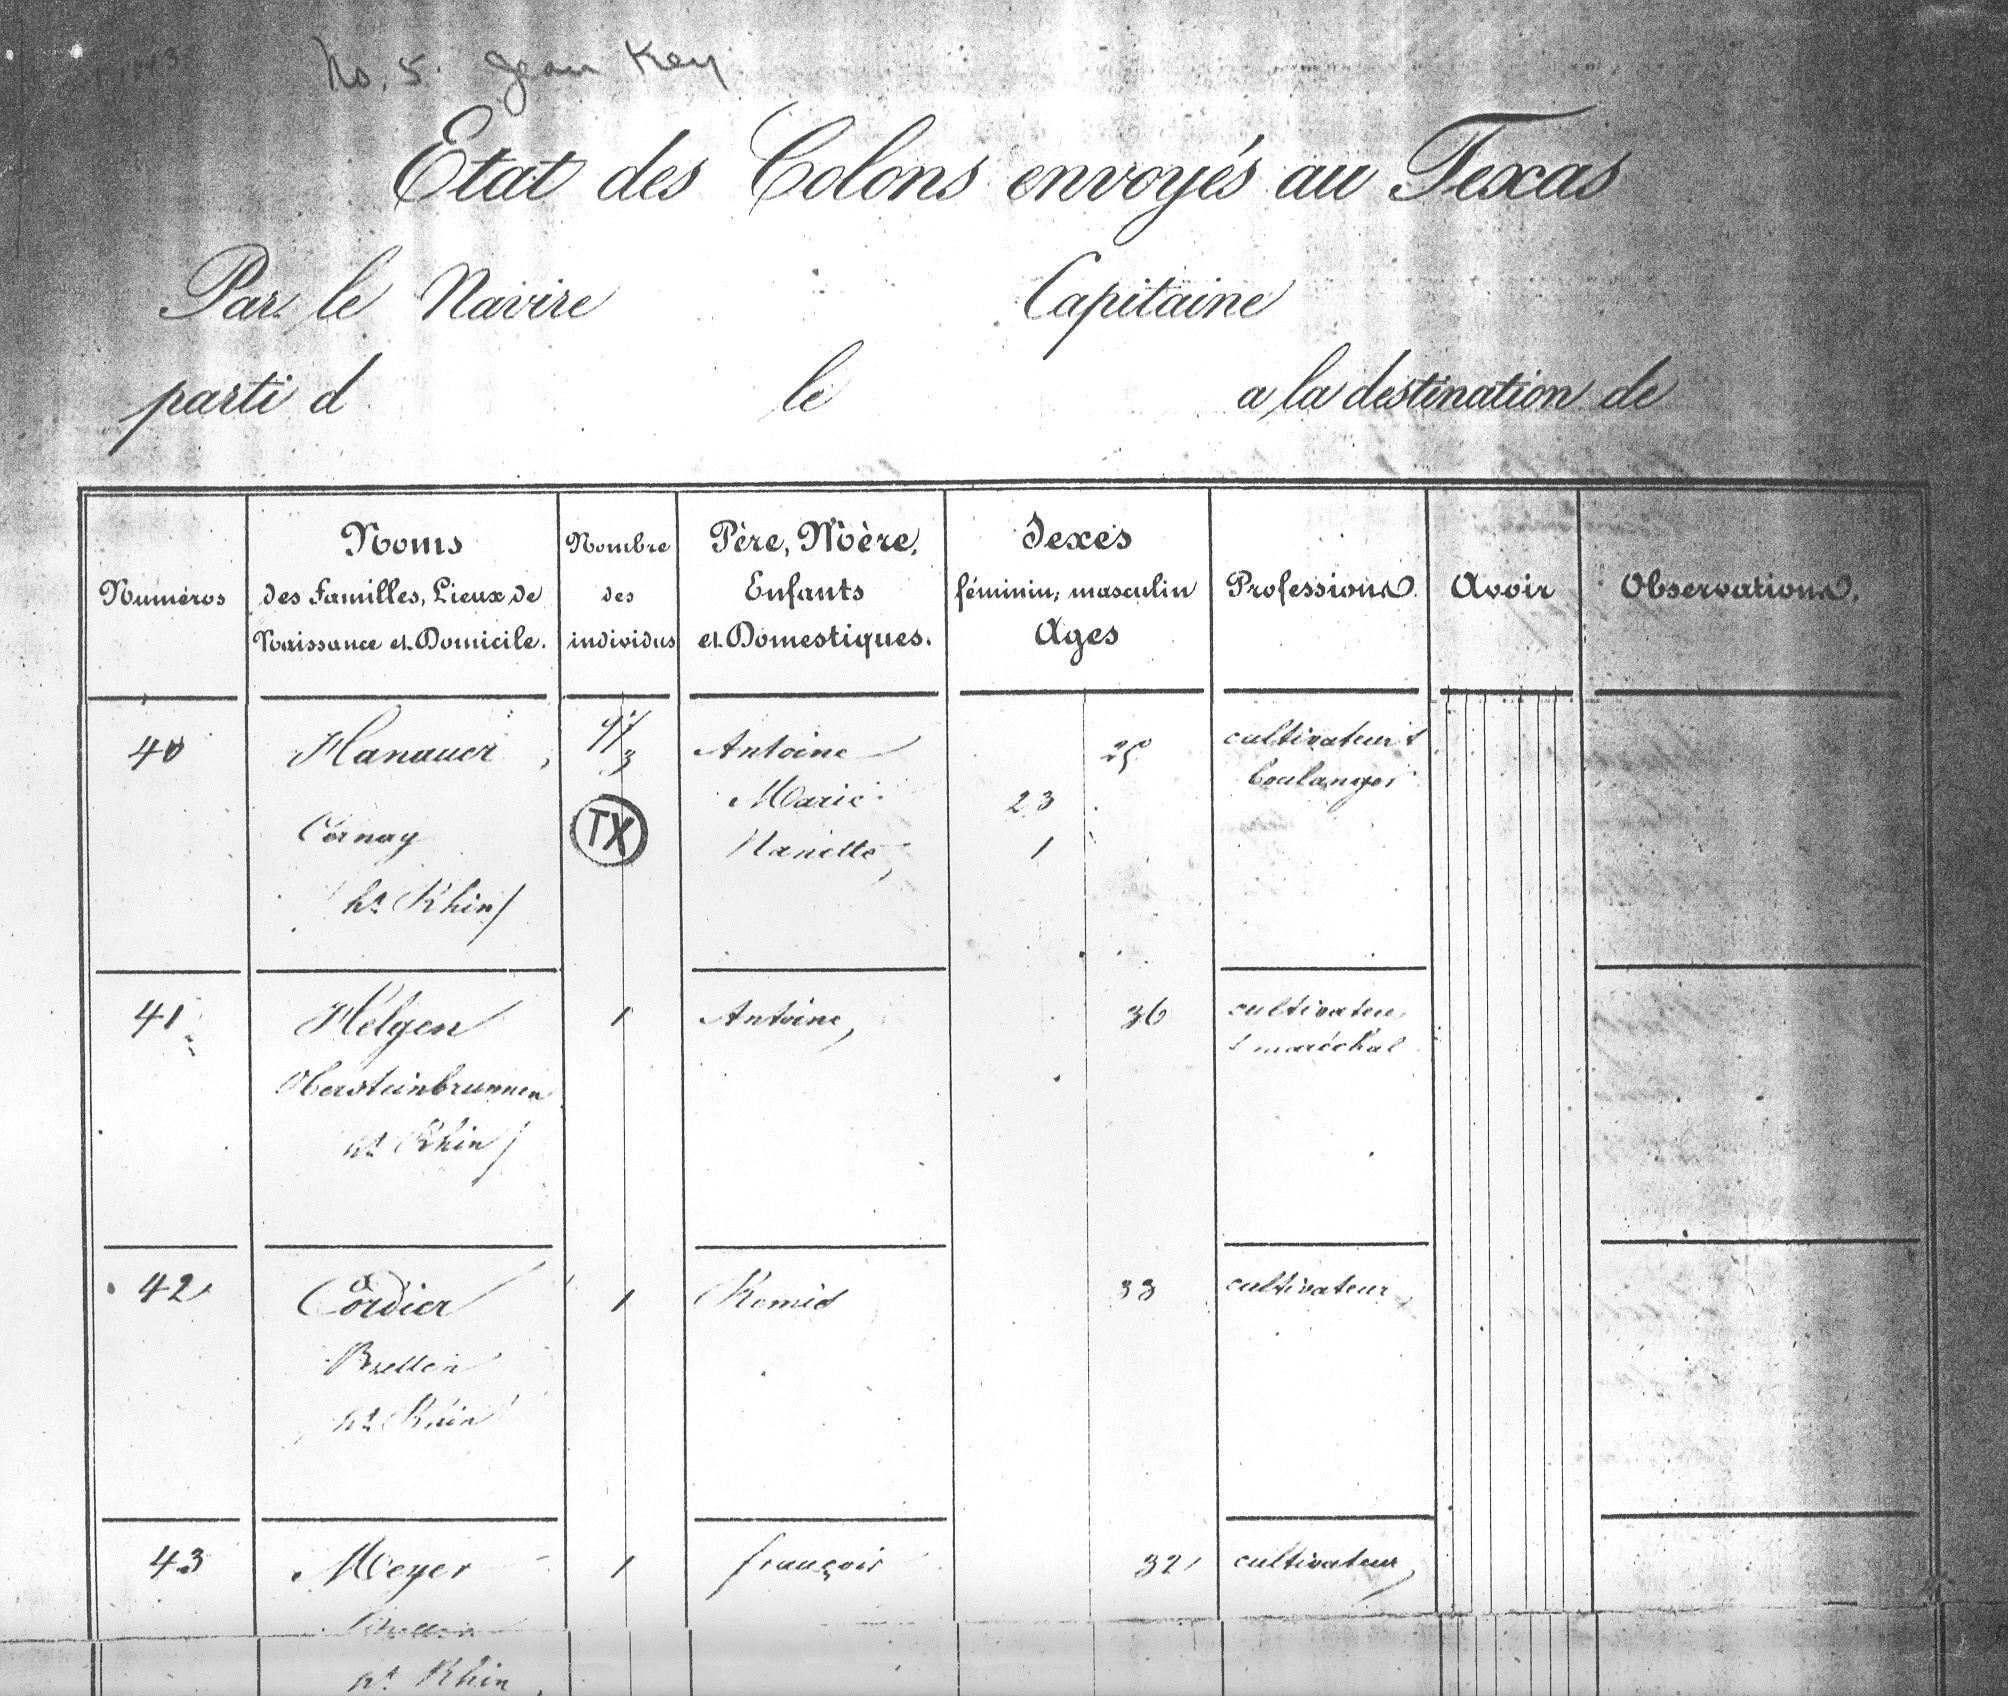 No. 5. Jean Key
Etat des Colons envoyés au Texas
Par le Navire Capitaine
parti d le a la destination de
Numéros
Noms
des Familles, Lieux de
Naissance et Domicile.
Nombre
des
individus
Père, Mère,
Enfants
et Domestiques.
Sexes
féminin, masculin
Ages
Professions.
Avoir
Observations.
40 Hanauer, 3 Antoine 25 cultivateur &
boulanger
Marie 23
TX
Cernay Nanette, 1
ht Rhin)
41 Helgen 1 Antoine, 36 cultivateur
& maréchal
Obersteinbrunnen
ht Rhin)
42 Cordier 1 Remid 33 cultivateur
ht Rhin
43 Meyer 1 françois 32 cultivateur
ht Rhin